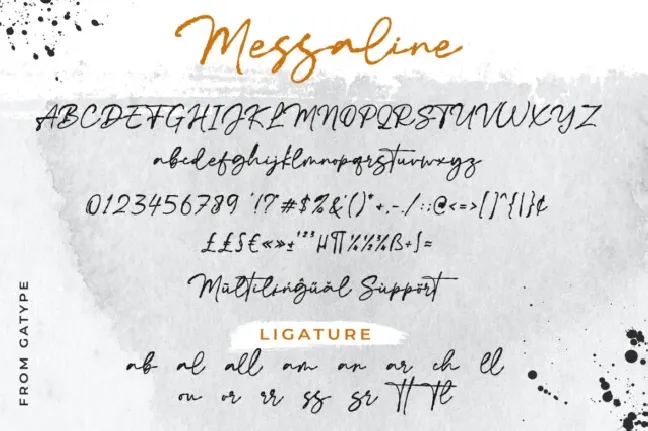 Messaline
ABCDEFGHIJKLMNOPQRSTUVWXYZ
abcdefghijklmnopqrstuvwxyz
0123456789 '!?"#$%&'()*+,-./:;@<=>[]^{|}¢
££§€«»±¹²³µ¶¼½¾ß÷∫=
Mūltilińğüāl Süppört
LIGATURE
ab al all am an ar ch ll
ou or rr ss sr tt tl
FROM GATYPE